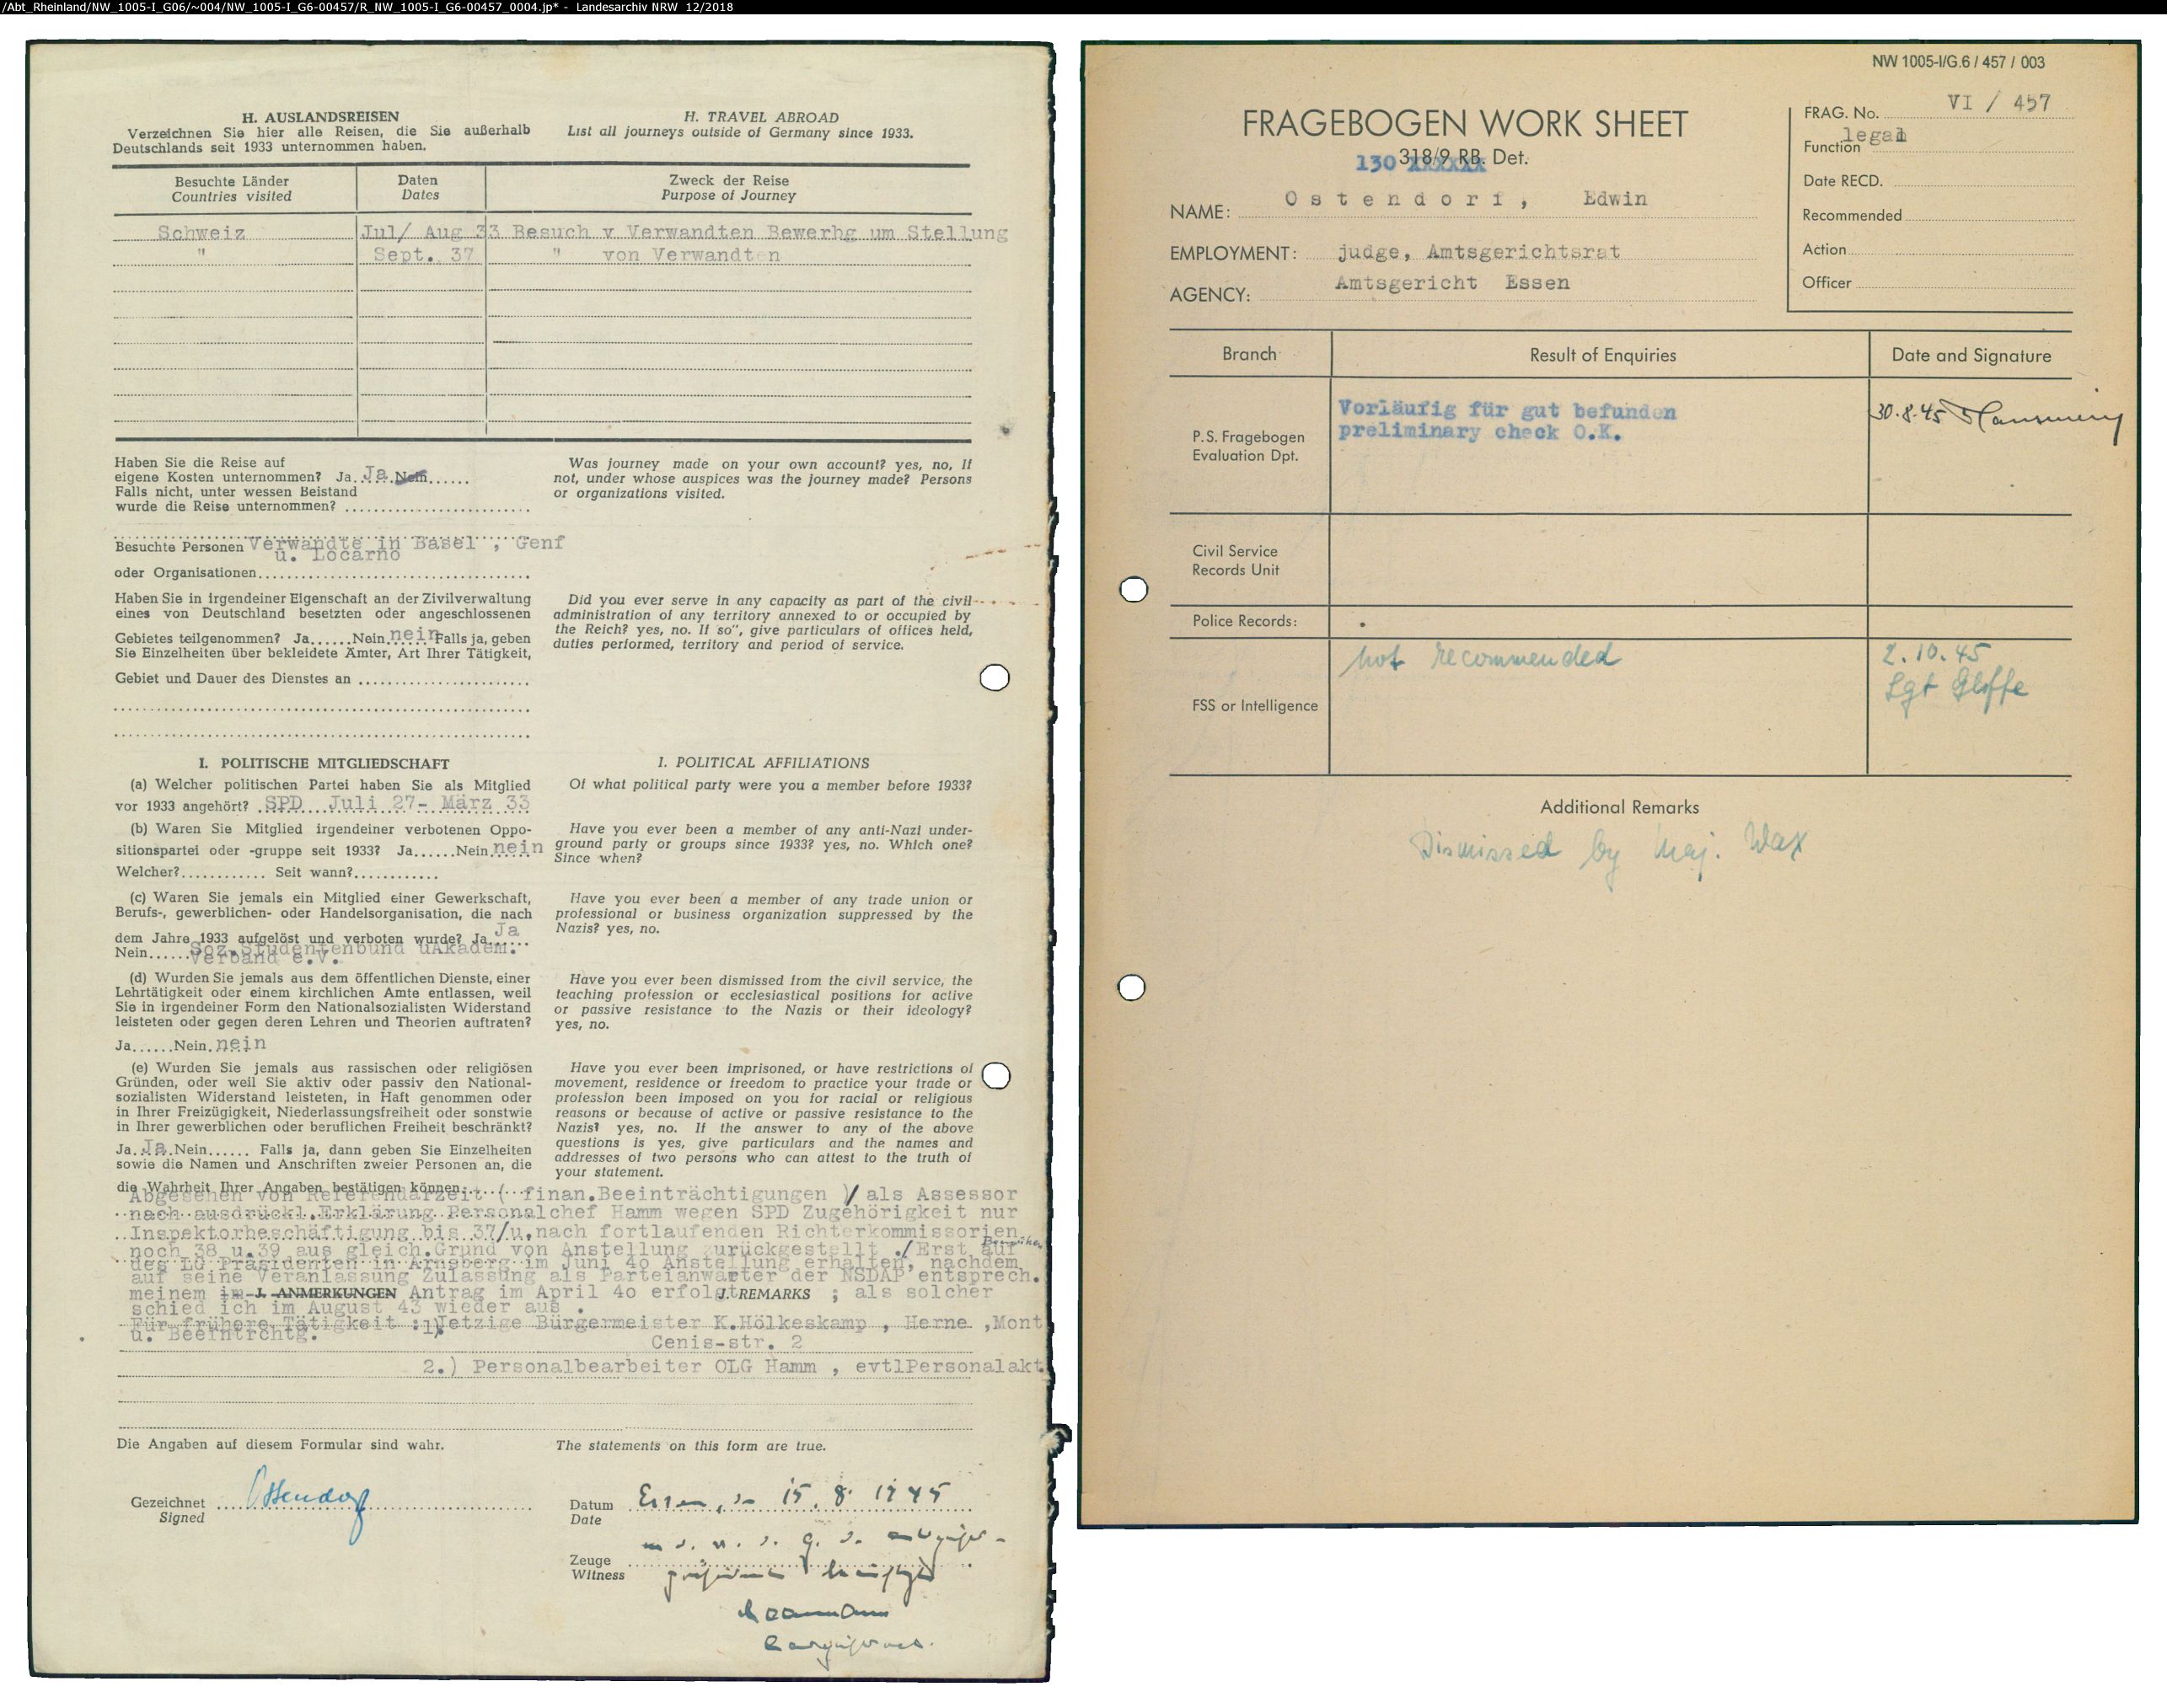 /Abt_Rheinland/NW_1005-I_G06/~004/NW_1005-I_G6-00457/R_NW_1005-I_G6-00457_0004.jp* - Landesarchiv NRW 12/2018
H. AUSLANDSREISEN
Verzeichnen Sie hier alle Reisen, die Sie außerhalb
Deutschlands seit 1933 unternommen haben.
H. TRAVEL ABROAD
List all journeys outside of Germany since 1933.
Besuchte Länder
Countries visited
Daten
Dates
Zweck der Reise
Purpose of Journey
Schweiz Jul/ Aug 33 Besuch v Verwandten Bewerbg um Stellung
" Sept. 37 " von Verwandten
Haben Sie die Reise auf
eigene Kosten unternommen? Ja Ja Nein
Falls nicht, unter wessen Beistand
wurde die Reise unternommen?
Was journey made on your own account? yes, no, If
not, under whose auspices was the journey made? Persons
or organizations visited.
Besuchte Personen Verwandte in Basel , Genf
u. Locarno
oder Organisationen
Haben Sie in irgendeiner Eigenschaft an der Zivilverwaltung
eines von Deutschland besetzten oder angeschlossenen
Gebietes teilgenommen? Ja......Nein nein Falls ja, geben
Sie Einzelheiten über bekleidete Ämter, Art Ihrer Tätigkeit,
Gebiet und Dauer des Dienstes an
Did you ever serve in any capacity as part of the civil
administration of any territory annexed to or occupied by
the Reich? yes, no. If so", give particulars of offices held,
duties performed, territory and period of service.
I. POLITISCHE MITGLIEDSCHAFT
I. POLITICAL AFFILIATIONS
(a) Welcher politischen Partei haben Sie als Mitglied
vor 1933 angehört? SPD Juli 27- März 33
Of what political party were you a member before 1933?
(b) Waren Sie Mitglied irgendeiner verbotenen Oppo-
sitionspartei oder -gruppe seit 1933? Ja......Nein nein
Welcher?............ Seit wann?............
Have you ever been a member of any anti-Nazi under-
ground party or groups since 1933? yes, no. Which one?
Since when?
(c) Waren Sie jemals ein Mitglied einer Gewerkschaft,
Berufs-, gewerblichen- oder Handelsorganisation, die nach
dem Jahre 1933 aufgelöst und verboten wurde? Ja Ja
Nein......Soz.Studentenbund uAkadem.
Verband e.V.
Have you ever been a member of any trade union or
professional or business organization suppressed by the
Nazis? yes, no.
(d) Wurden Sie jemals aus dem öffentlichen Dienste, einer
Lehrtätigkeit oder einem kirchlichen Amte entlassen, weil
Sie in irgendeiner Form den Nationalsozialisten Widerstand
leisteten oder gegen deren Lehren und Theorien auftraten?
Ja......Nein nein
Have you ever been dismissed from the civil service, the
teaching profession or ecclesiastical positions for active
or passive resistance to the Nazis or their ideology?
yes, no.
(e) Wurden Sie jemals aus rassischen oder religiösen
Gründen, oder weil Sie aktiv oder passiv den National-
sozialisten Widerstand leisteten, in Haft genommen oder
in Ihrer Freizügigkeit, Niederlassungsfreiheit oder sonstwie
in Ihrer gewerblichen oder beruflichen Freiheit beschränkt?
Ja. Ja.Nein...... Falls ja, dann geben Sie Einzelheiten
sowie die Namen und Anschriften zweier Personen an, die
die Wahrheit Ihrer Angaben bestätigen können
Have you ever been imprisoned, or have restrictions of
movement, residence or freedom to practice your trade or
profession been imposed on you for racial or religious
reasons or because of active or passive resistance to the
Nazis? yes, no. If the answer to any of the above
questions is yes, give particulars and the names and
addresses of two persons who can attest to the truth of
your statement.
Abgesehen von Referendarzeit ( finan.Beeinträchtigungen )/ als Assessor
nach ausdrückl.Erklärung Personalchef Hamm wegen SPD Zugehörigkeit nur
Inspektorbeschäftigung bis 37/u.nach fortlaufenden Richterkommissorien
noch 38 u.39 aus gleich.Grund von Anstellung zurückgestellt ./Erst auf
des LG Präsidenten in Arnsberg im Juni 40 Anstellung erhalten, nachdem
auf seine Veranlassung Zulassung als Parteianwärter der NSDAP entsprech.
meinem im J. ANMERKUNGEN Antrag im April 40 erfolgt J. REMARKS ; als solcher
schied ich im August 43 wieder aus .
Für frühere Tätigkeit :1)Jetzige Bürgermeister K.Hölkeskamp , Herne ,Mont
u. Beeintrchtg.
Cenis-str. 2
2.) Personalbearbeiter OLG Hamm , evtlPersonalakt.
Die Angaben auf diesem Formular sind wahr.
The statements on this form are true.
Gezeichnet
Signed
Ostendorf
Datum
Date
Essen, 15. 8. 1945
Zeuge
Witness
NW 1005-I/G.6 / 457 / 003
FRAGEBOGEN WORK SHEET
130 318/9 RB. Det.
FRAG. No. VI / 457
Function legal
Date RECD.
Recommended
Action
Officer
NAME: Ostendorf, Edwin
EMPLOYMENT: judge, Amtsgerichtsrat
AGENCY: Amtsgericht Essen
Branch
Result of Enquiries
Date and Signature
P.S. Fragebogen
Evaluation Dpt.
Vorläufig für gut befunden
preliminary check O.K.
30.8.45
Civil Service
Records Unit
Police Records:
FSS or Intelligence
not recommended
2.10.45
Sgt
Additional Remarks
Dismissed by Maj. Wax